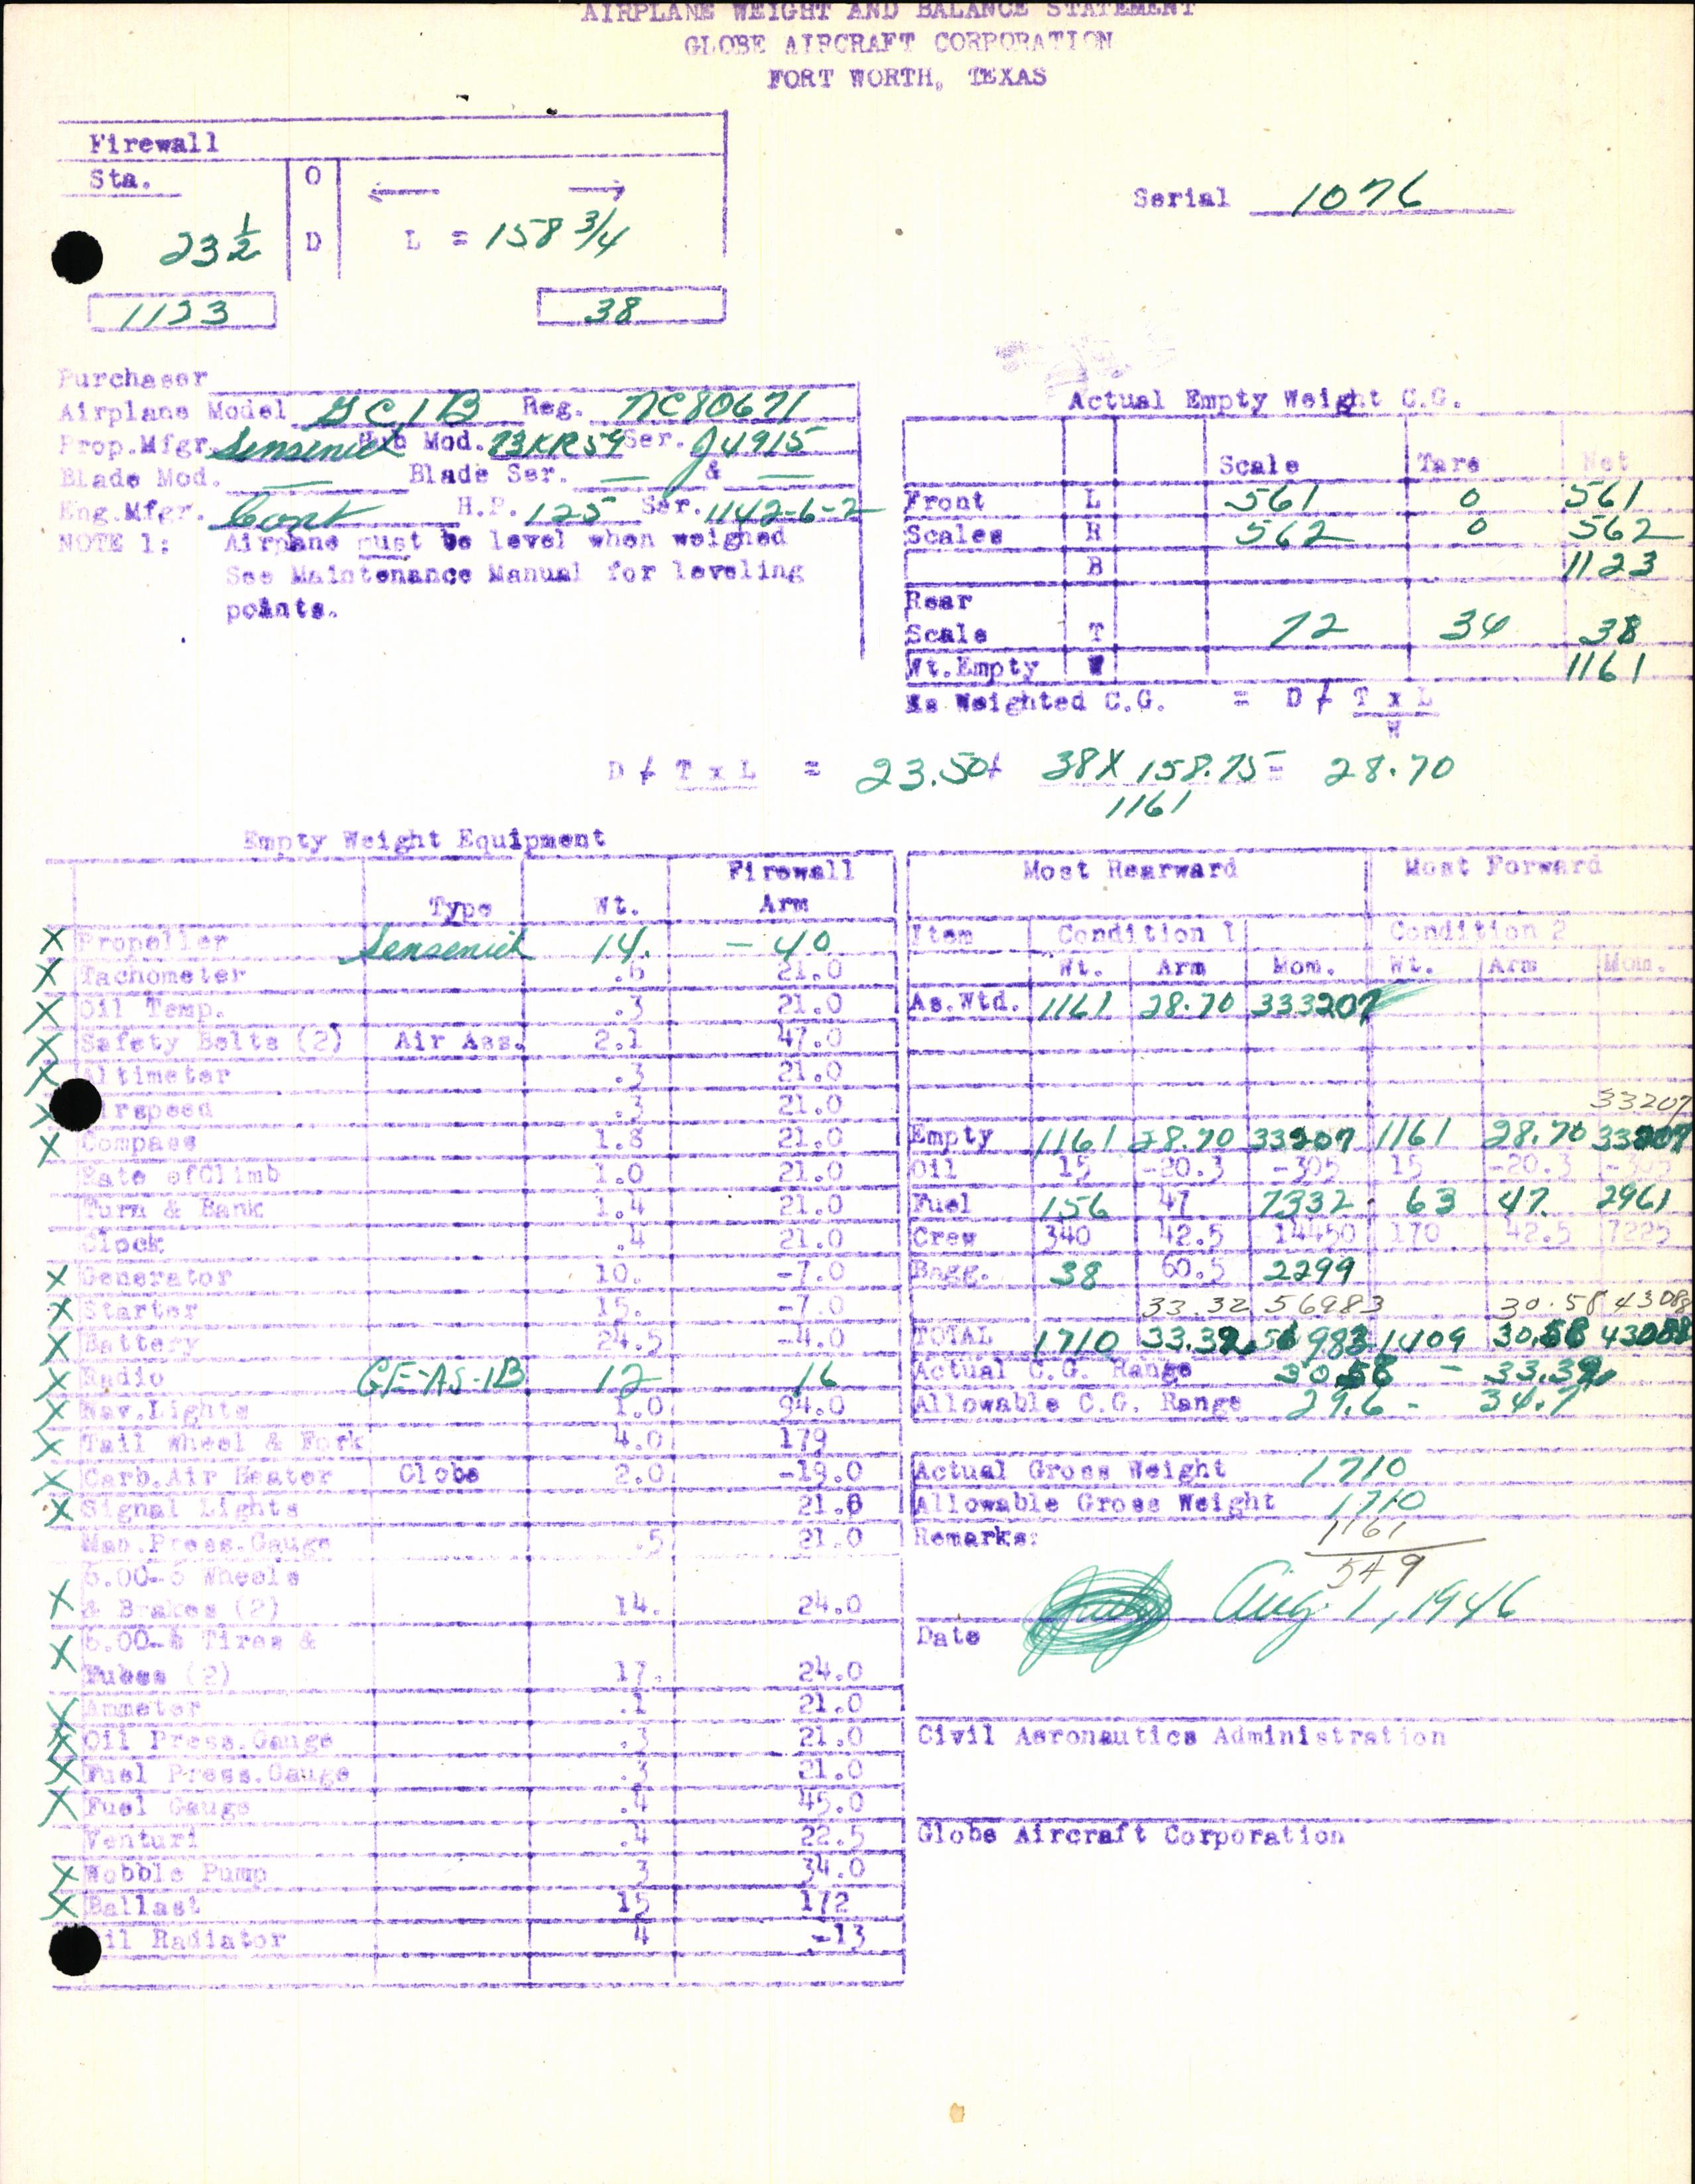 AIRPLANE WEIGHT AND BALANCE STATEMENT
GLOBE AIRCRAFT CORPORATION
FORT WORTH, TEXAS
Firewall
Sta. O
23 1/2 D L = 158 3/4
1123 38
Serial 1076
Purchaser
Airplane Model GC1B Reg. NC80671
Prop.Mfgr. Sensenich Hub Mod. 73KR59 Ser. J4915
Blade Mod. — Blade Ser. — & —
Eng.Mfgr. Cont H.P. 125 Ser. 1142-6-2
NOTE 1: Airplane must be level when weighed
See Maintenance Manual for leveling
points.
Actual Empty Weight C.G.
Scale Tare Net
Front L 561 0 561
Scales R 562 0 562
B 1123
Rear
Scale T 72 34 38
Wt.Empty W 1161
As Weighted C.G. = D + T x L
W
D + T x L = 23.50+ 38 X 158.75 = 28.70
1161
Empty Weight Equipment
Type Wt. Firewall Arm
X Propeller Sensenich 14. -40
X Tachometer 21.0
X Oil Temp. .3 21.0
X Safety Belts (2) Air Ass. 2.1 47.0
X Altimeter .3 21.0
X Airspeed .3 21.0
X Compass 1.8 21.0
Rate ofClimb 1.0 21.0
Turn & Bank 1.4 21.0
Clock .4 21.0
X Generator 10. -7.0
X Starter 15. -7.0
X Battery 24.5 -4.0
X Radio GE-AS-1B 12 16
X Nav.Lights 1.0 94.0
X Tail Wheel & Fork 4.0 179
X Carb.Air Heater Globe 2.0 -19.0
X Signal Lights 21.0
Man.Press.Gauge .5 21.0
Wheels
X & Brakes (2) 14. 24.0
X Tires &
Tubes (2) 17. 24.0
X Ammeter .1 21.0
X Oil Press.Gauge .3 21.0
X Fuel Press.Gauge .3 21.0
X Fuel Gauge .4 45.0
Venturi .4 22.5
X Wobble Pump 3 34.0
X Ballast 15 172
Oil Radiator 4 -13
Most Rearward Most Forward
Item Condition 1 Condition 2
Wt. Arm Mom. Wt. Arm Mom.
As.Wtd. 1161 28.70 333207
33207
Empty 1161 28.70 33207 1161 28.70 33207
Oil 15 -20.3 -305 15 -20.3 -305
Fuel 156 47 7332 63 47. 2961
Crew 340 42.5 14450 170 42.5 7225
Bagg. 38 60.5 2299
33.32 56983 30.58 43088
TOTAL 1710 33.32 56983 1409 30.58 43088
Actual C.G. Range 30.58 - 33.32
Allowable C.G. Range 29.6 - 34.7
Actual Gross Weight 1710
Allowable Gross Weight 1710
Remarks: 1161
549
Aug. 1, 1946
Date
Civil Aeronautics Administration
Globe Aircraft Corporation